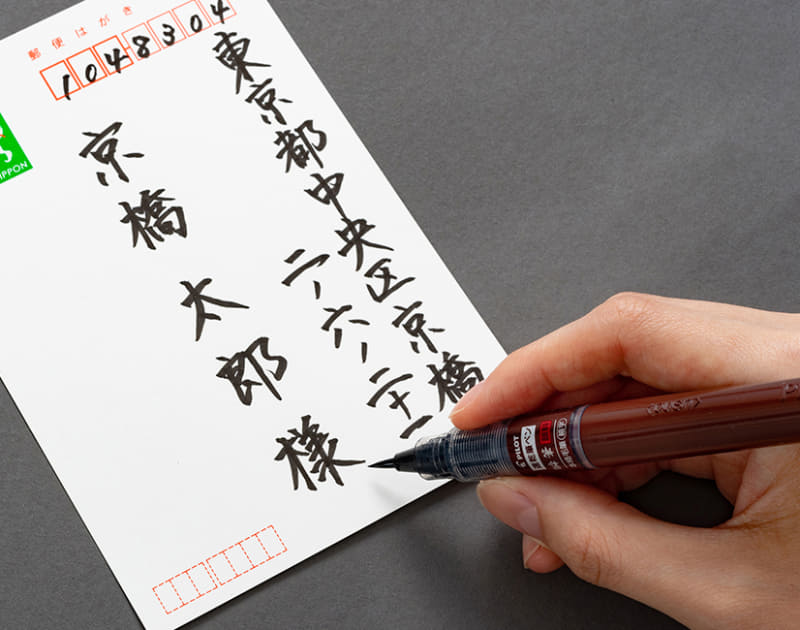 郵便はがき
1048304
東京都中央区京橋
二、六、二十一
京橋 太郎 様
NIPPON
PILOT